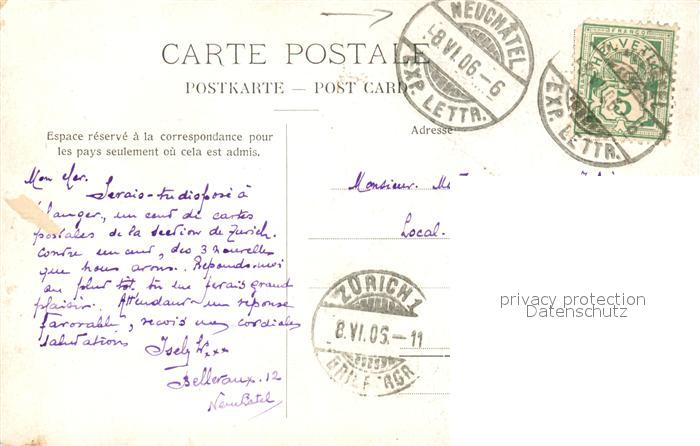 NEUCHÂTEL
8 VI. 06 - 6
EXP. LETTR.
FRANCO
HELVETIA
5
EXP. LETTR.
CARTE POSTALE
POSTKARTE — POST CARD
Espace réservé à la correspondance pour
les pays seulement où cela est admis.
Adresse
Mon cher.
Serais-tu disposé à
un cent de cartes
postales de la section de Zurich.
contre un cent, des 3 nouvelles
que nous avons. Réponds-moi
au plus tôt. tu me ferais grand
plaisir. Attendant une réponse
favorable, reçois mes cordiales
salutations
Bellevaux. 12
Neuchatel
Monsieur.
Local.
ZÜRICH 1
8. VI. 06. - 11
privacy protection
Datenschutz